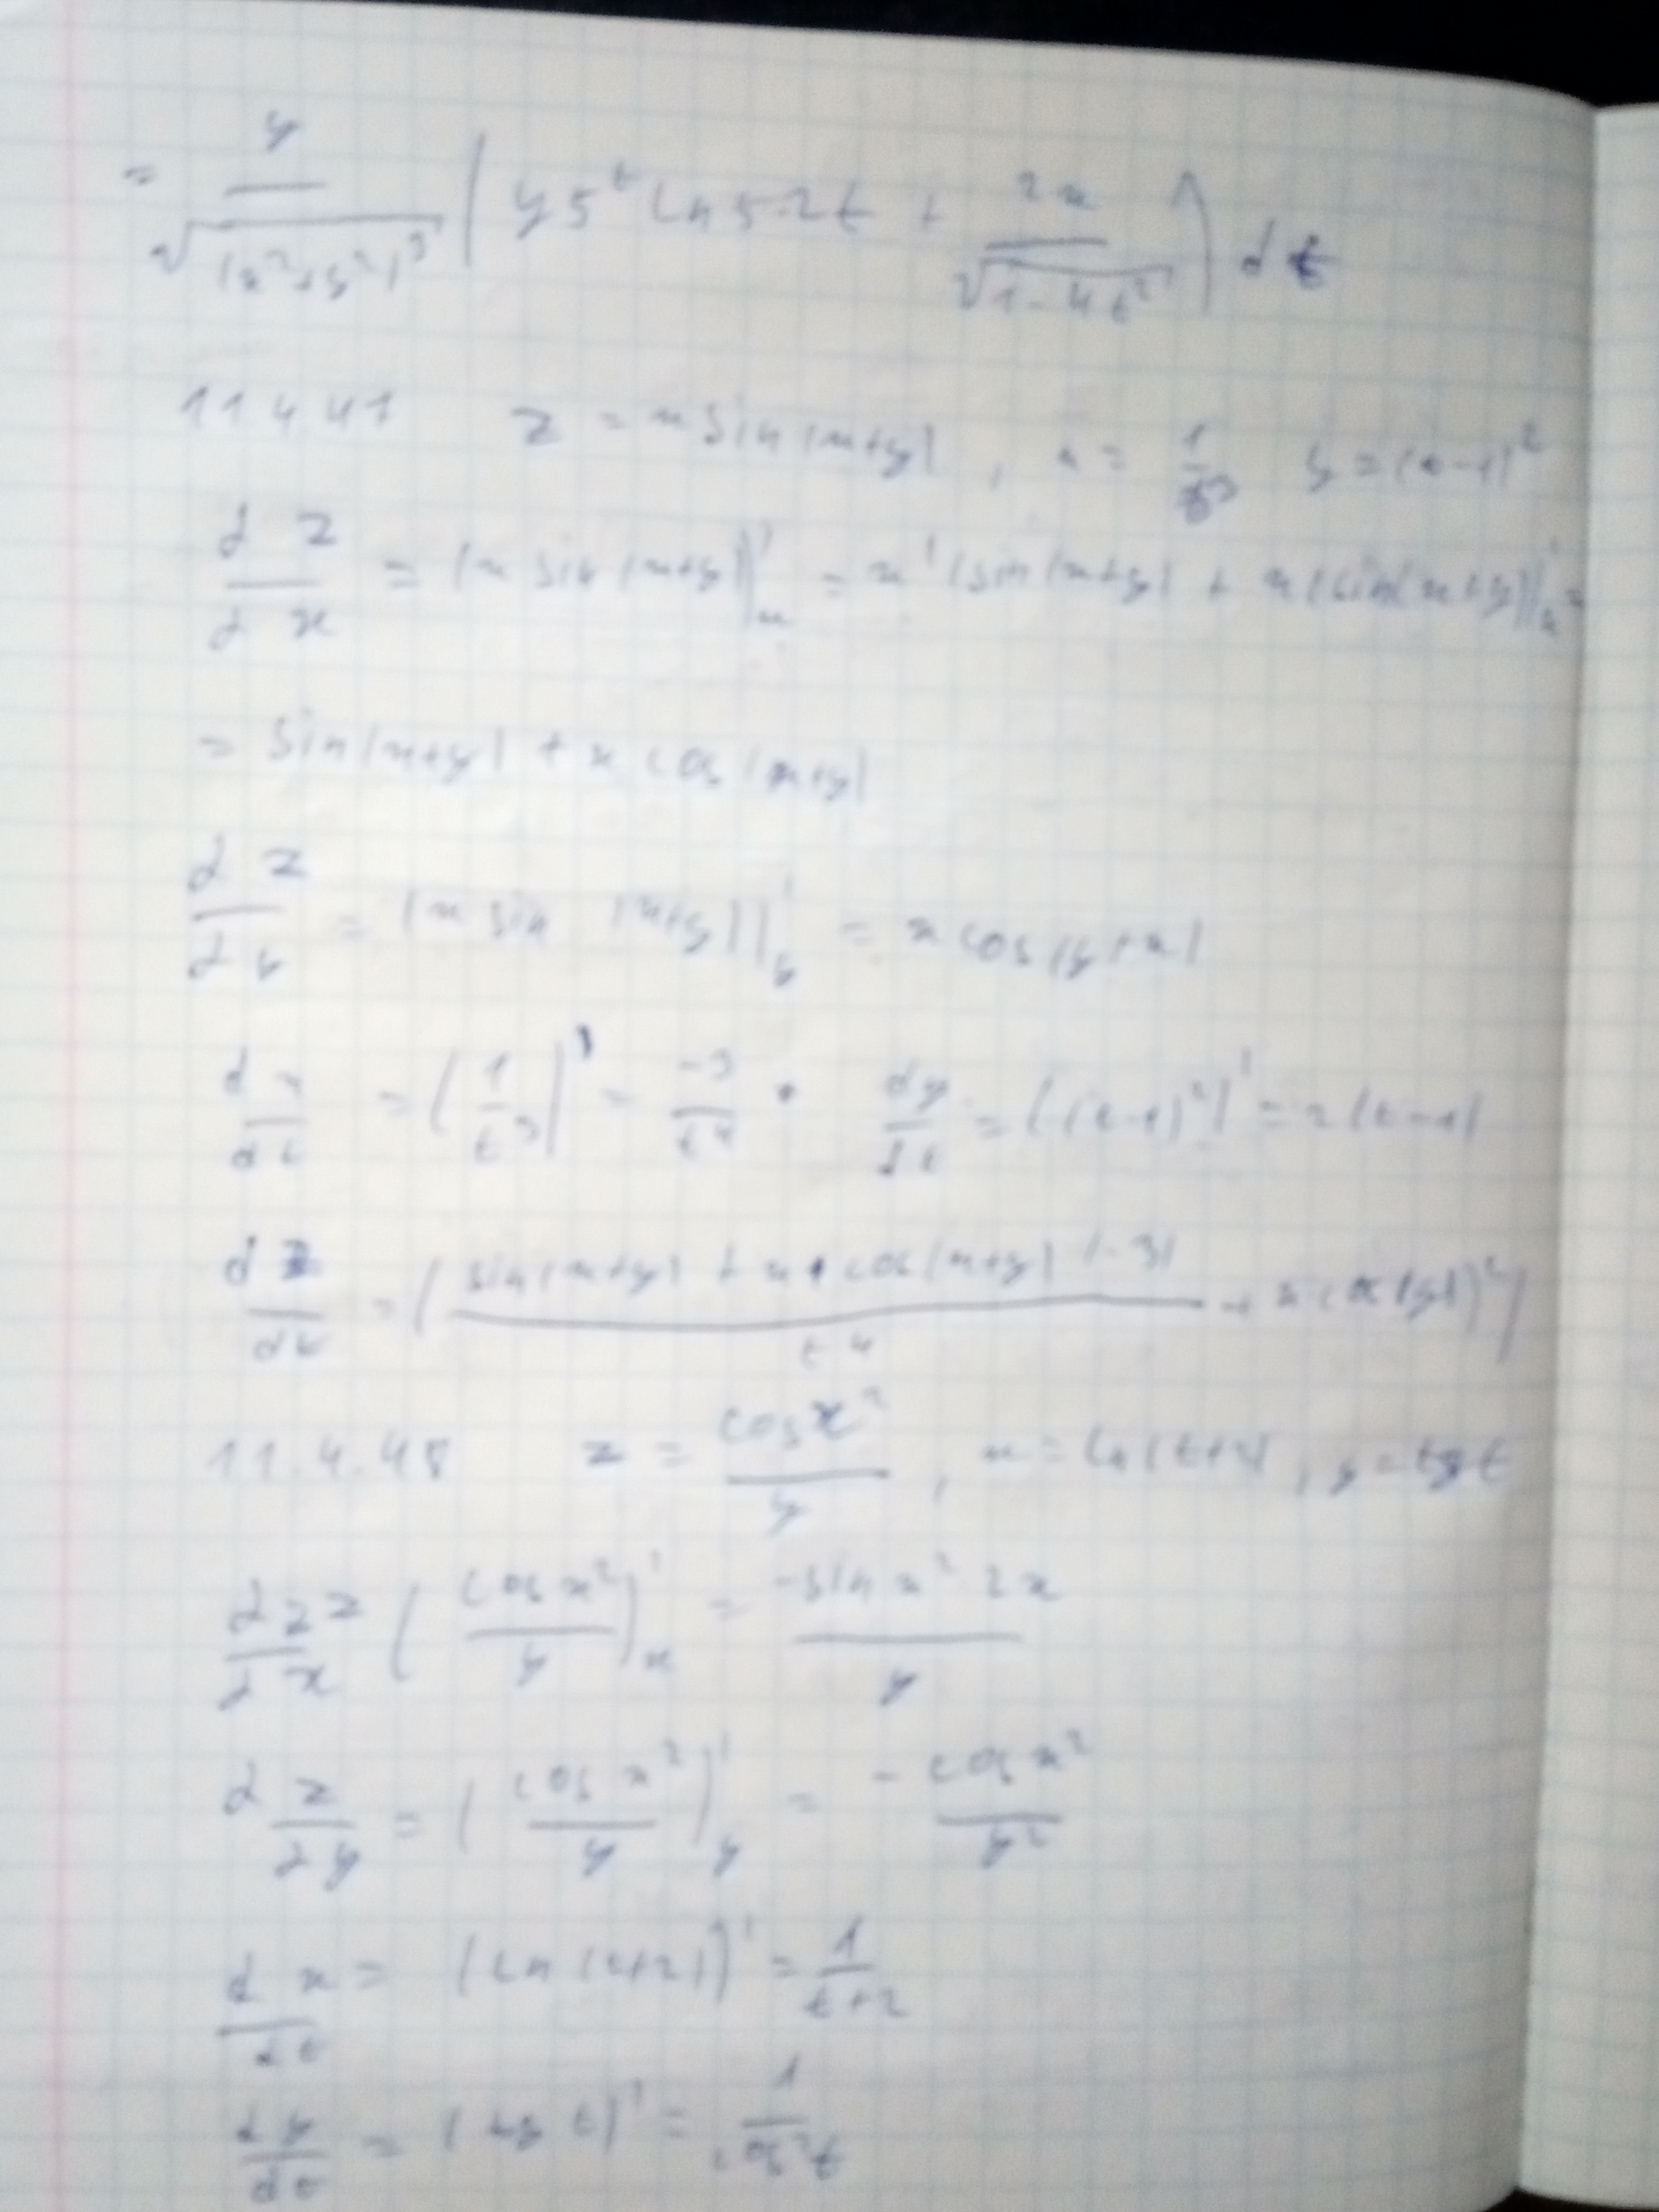 = y / √(x²+y²)³ ( y5ᵗ ln5·2t + 2x / √1-4t² ) dt
11.4.41 z = x sin(x+y), x = 1/t³ y = (t-1)²
∂z/∂x = (x sin(x+y))'ₓ = x'(sin(x+y) + x(sin(x+y))'ₓ =
= sin(x+y) + x cos(x+y)
∂z/∂y = (x sin (x+y))'ᵧ = x cos(y+x)
dx/dt = (1/t³)' = -3/t⁴ · dy/dt = ((t-1)²)' = 2(t-1)
dz/dt = ( sin(x+y) + x·cos(x+y) (-3) / t⁴ +
z = cos x² / y, x = ln(t+ , y = tg t
(cos x² / y)'ₓ = -sin x² 2x / y
∂z/∂y = (cos x² / y)'ᵧ = - cos x² / y²
dx/dt = (ln(t+2))' = 1/t+2
dy/dt = (tg t)' = 1/cos²t